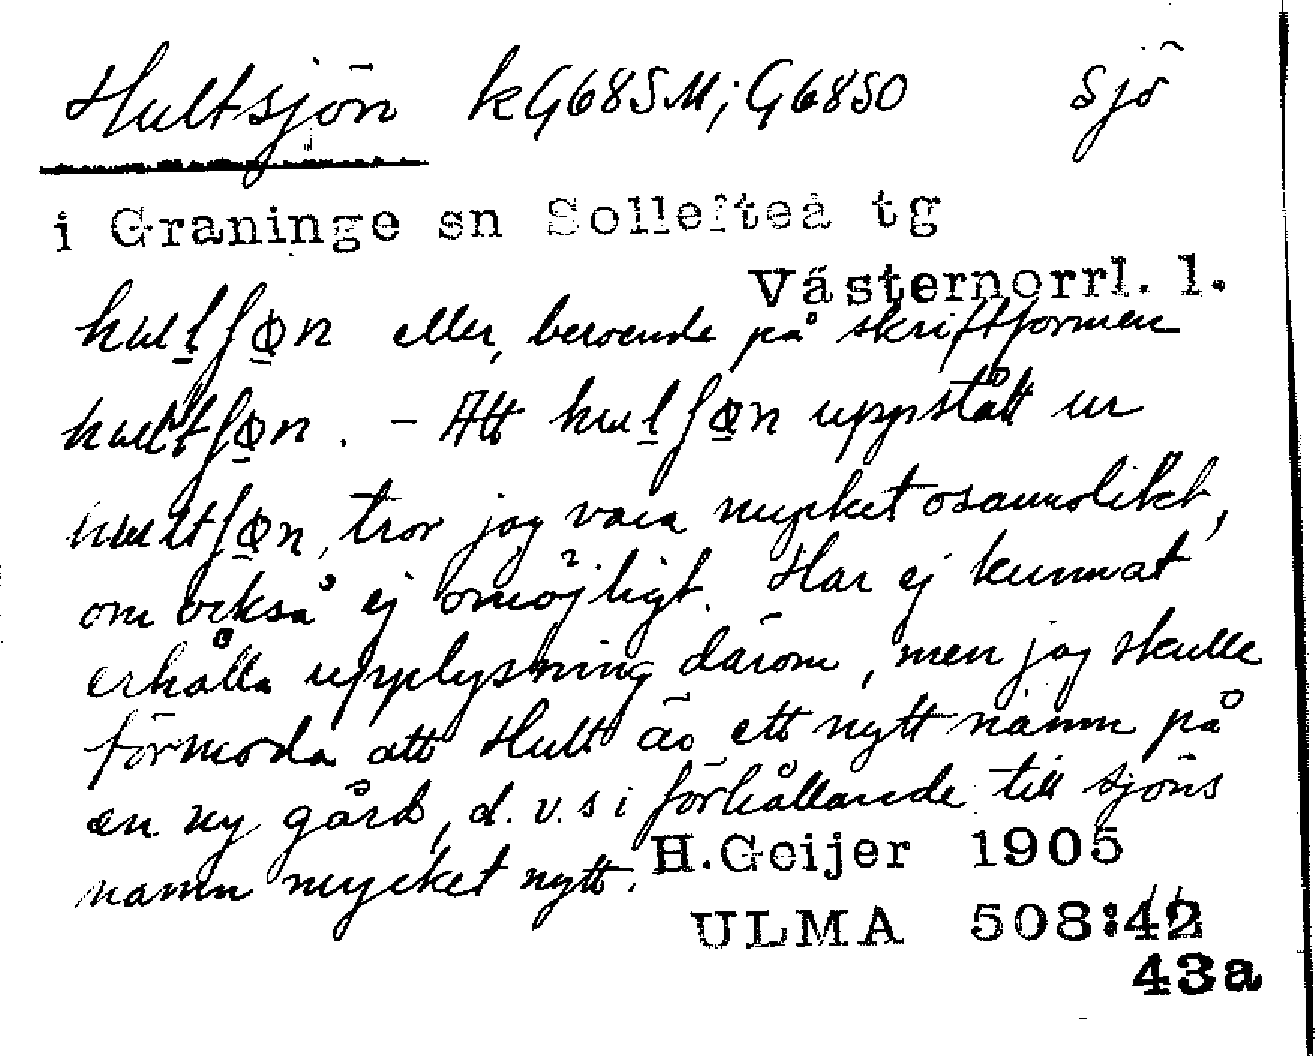 Hultsjön kG685M; G6850 sjö
i Graninge sn Sollefteå tg
Västernorrl. l.
eller, beroende på skriftformen
. – Att uppstått ur
, tror jag vara mycket osannolikt,
om också ej omöjligt. Har ej kunnat
erhålla upplysning därom, men jag skulle
förmoda att Hult är ett nytt namn på
en ny gård, d.v.s i förhållande till sjöns
namn mycket nytt.
H.Geijer 1905
ULMA 508:42
43a